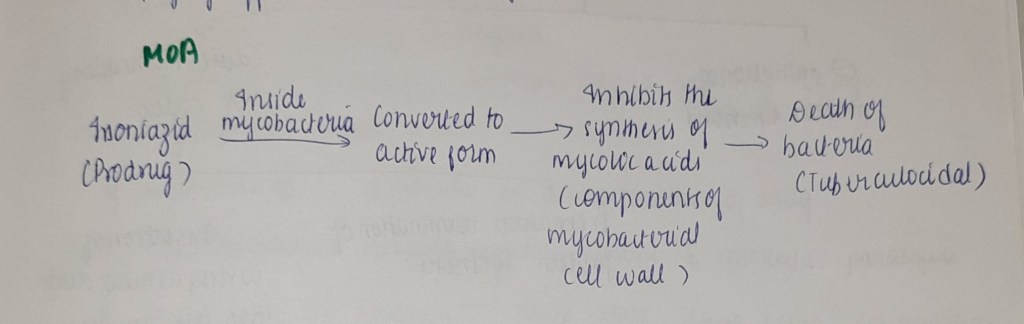 MOA
Isoniazid
(Prodrug)
Inside
mycobacteria
Converted to
active form
Inhibits the
synthesis of
mycolic acids
(components of
mycobacterial
cell wall)
Death of
bacteria
(Tuberculocidal)